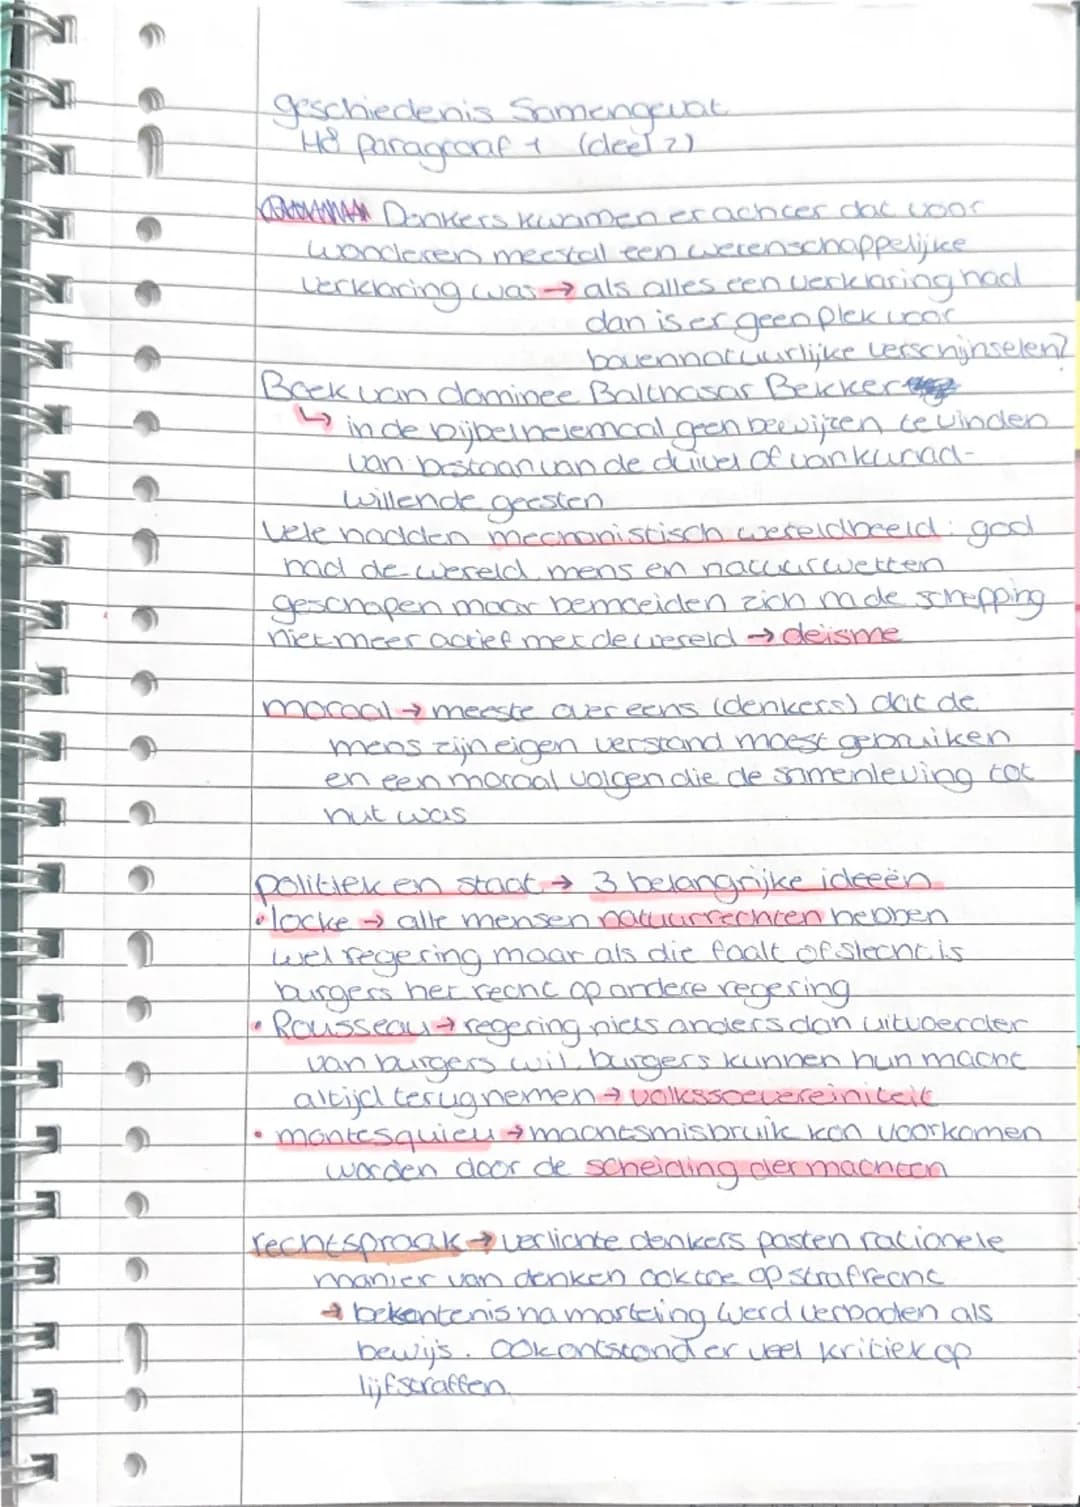 geschiedenis Samengevat
H8 paragraaf 1 (deel 2)
Denkers kwamen er achter dat voor
wonderen meestal een wetenschappelijke
verklaring was → als alles een verklaring had
dan is er geen plek voor
bovennatuurlijke verschijnselen?
Boek van dominee Balthasar Bekker
↳ in de bijbel helemaal geen bewijzen te vinden
van bestaan van de duivel of van kwaad-
willende geesten
Vele hadden mechanistisch wereldbeeld: god
had de wereld, mens en natuurwetten
geschapen maar bemoeiden zich na de schepping
niet meer actief met de wereld → deïsme
moraal → meeste over eens (denkers) dat de
mens zijn eigen verstand moest gebruiken
en een moraal volgen die de samenleving tot
nut was
politiek en staat → 3 belangrijke ideeën
• locke → alle mensen natuurrechten hebben
wel regering maar als die faalt of slecht is
burgers het recht op andere regering
• Rousseau → regering niets anders dan uitvoerder
van burgers wil, burgers kunnen hun macht
altijd terugnemen → volkssoevereiniteit
• montesquieu → machtsmisbruik kon voorkomen
worden door de scheiding der machten
rechtspraak → verlichte denkers pasten rationele
manier van denken ook toe op strafrecht
→ bekentenis na marteling werd verboden als
bewijs. Ook ontstond er veel kritiek op
lijfstraffen.